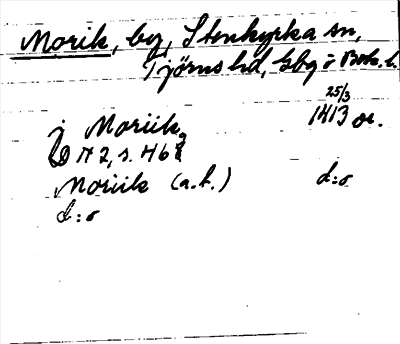 Morik, by, Stenkyrka sn,
Tjörns hd, Gbg o Boh. l.
25/3
j Moriik 1413 or.
N 2, s. 46
Moriik (a.h.) d:o
d:o